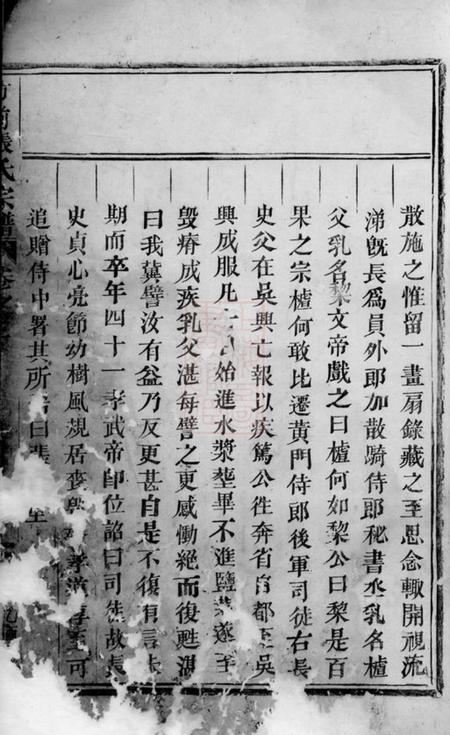 散施之惟留一畫扇錄藏之至思念輙開視流
涕既長爲員外郎加散騎侍郎秘書丞乳名樝
父乳名黎文帝戲之曰樝何如黎公曰黎是百
果之宗樝何敢比遷黄門侍郎後軍司徒右長
史父在吳興亡報以疾篤公徃奔省自都至吳
興成服凡十 始進水漿塟畢不進鹽菜遂至
毁瘠成疾乳父湛每譬之更感慟絶而復甦湛
曰我冀譬汝有益乃反更甚自是不復有言未
期而卒年四十一孝武帝即位詔曰司徒故長
史貞心亮節幼樹風規居喪 孝道 至可
追贈侍中署其所居曰張 里
張氏宗譜